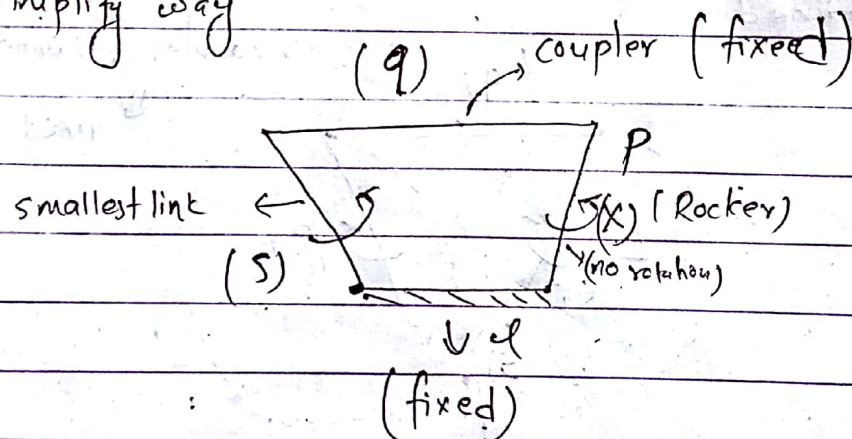 way
(q) coupler (fixed)
P
smallest link (X) (Rocker)
(S) (no rotation)
l
(fixed)